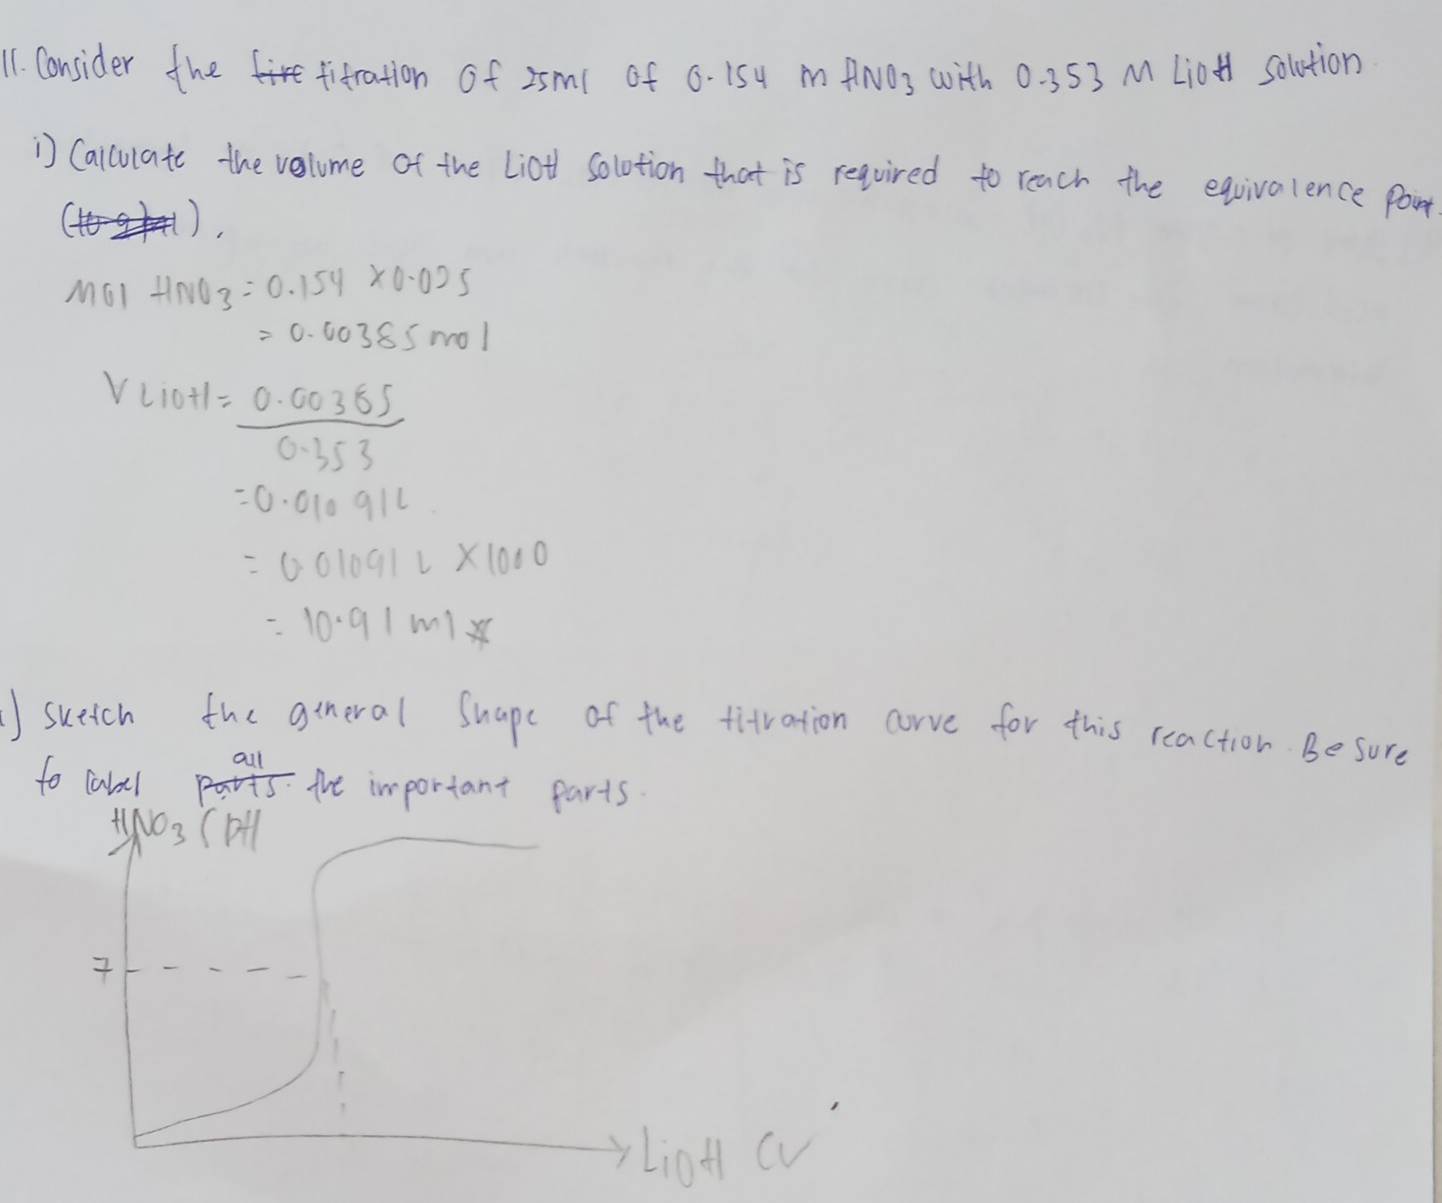 11. Consider the titration of 25ml of 0.154 m HNO3 with 0.353 M LiOH solution
i) Calculate the volume of the LiOH solution that is required to reach the equivalence point.
( ).
Mol HNO3 = 0.154 X 0.025
= 0.00385 mol
V LiOH = 0.00385
0.353
= 0.01091L
= 0.01091 L X 1000
= 10.91 ml
) Sketch the general shape of the titration curve for this reaction. Be sure
to label all the important parts.
HNO3 (pH
7
LiOH (V